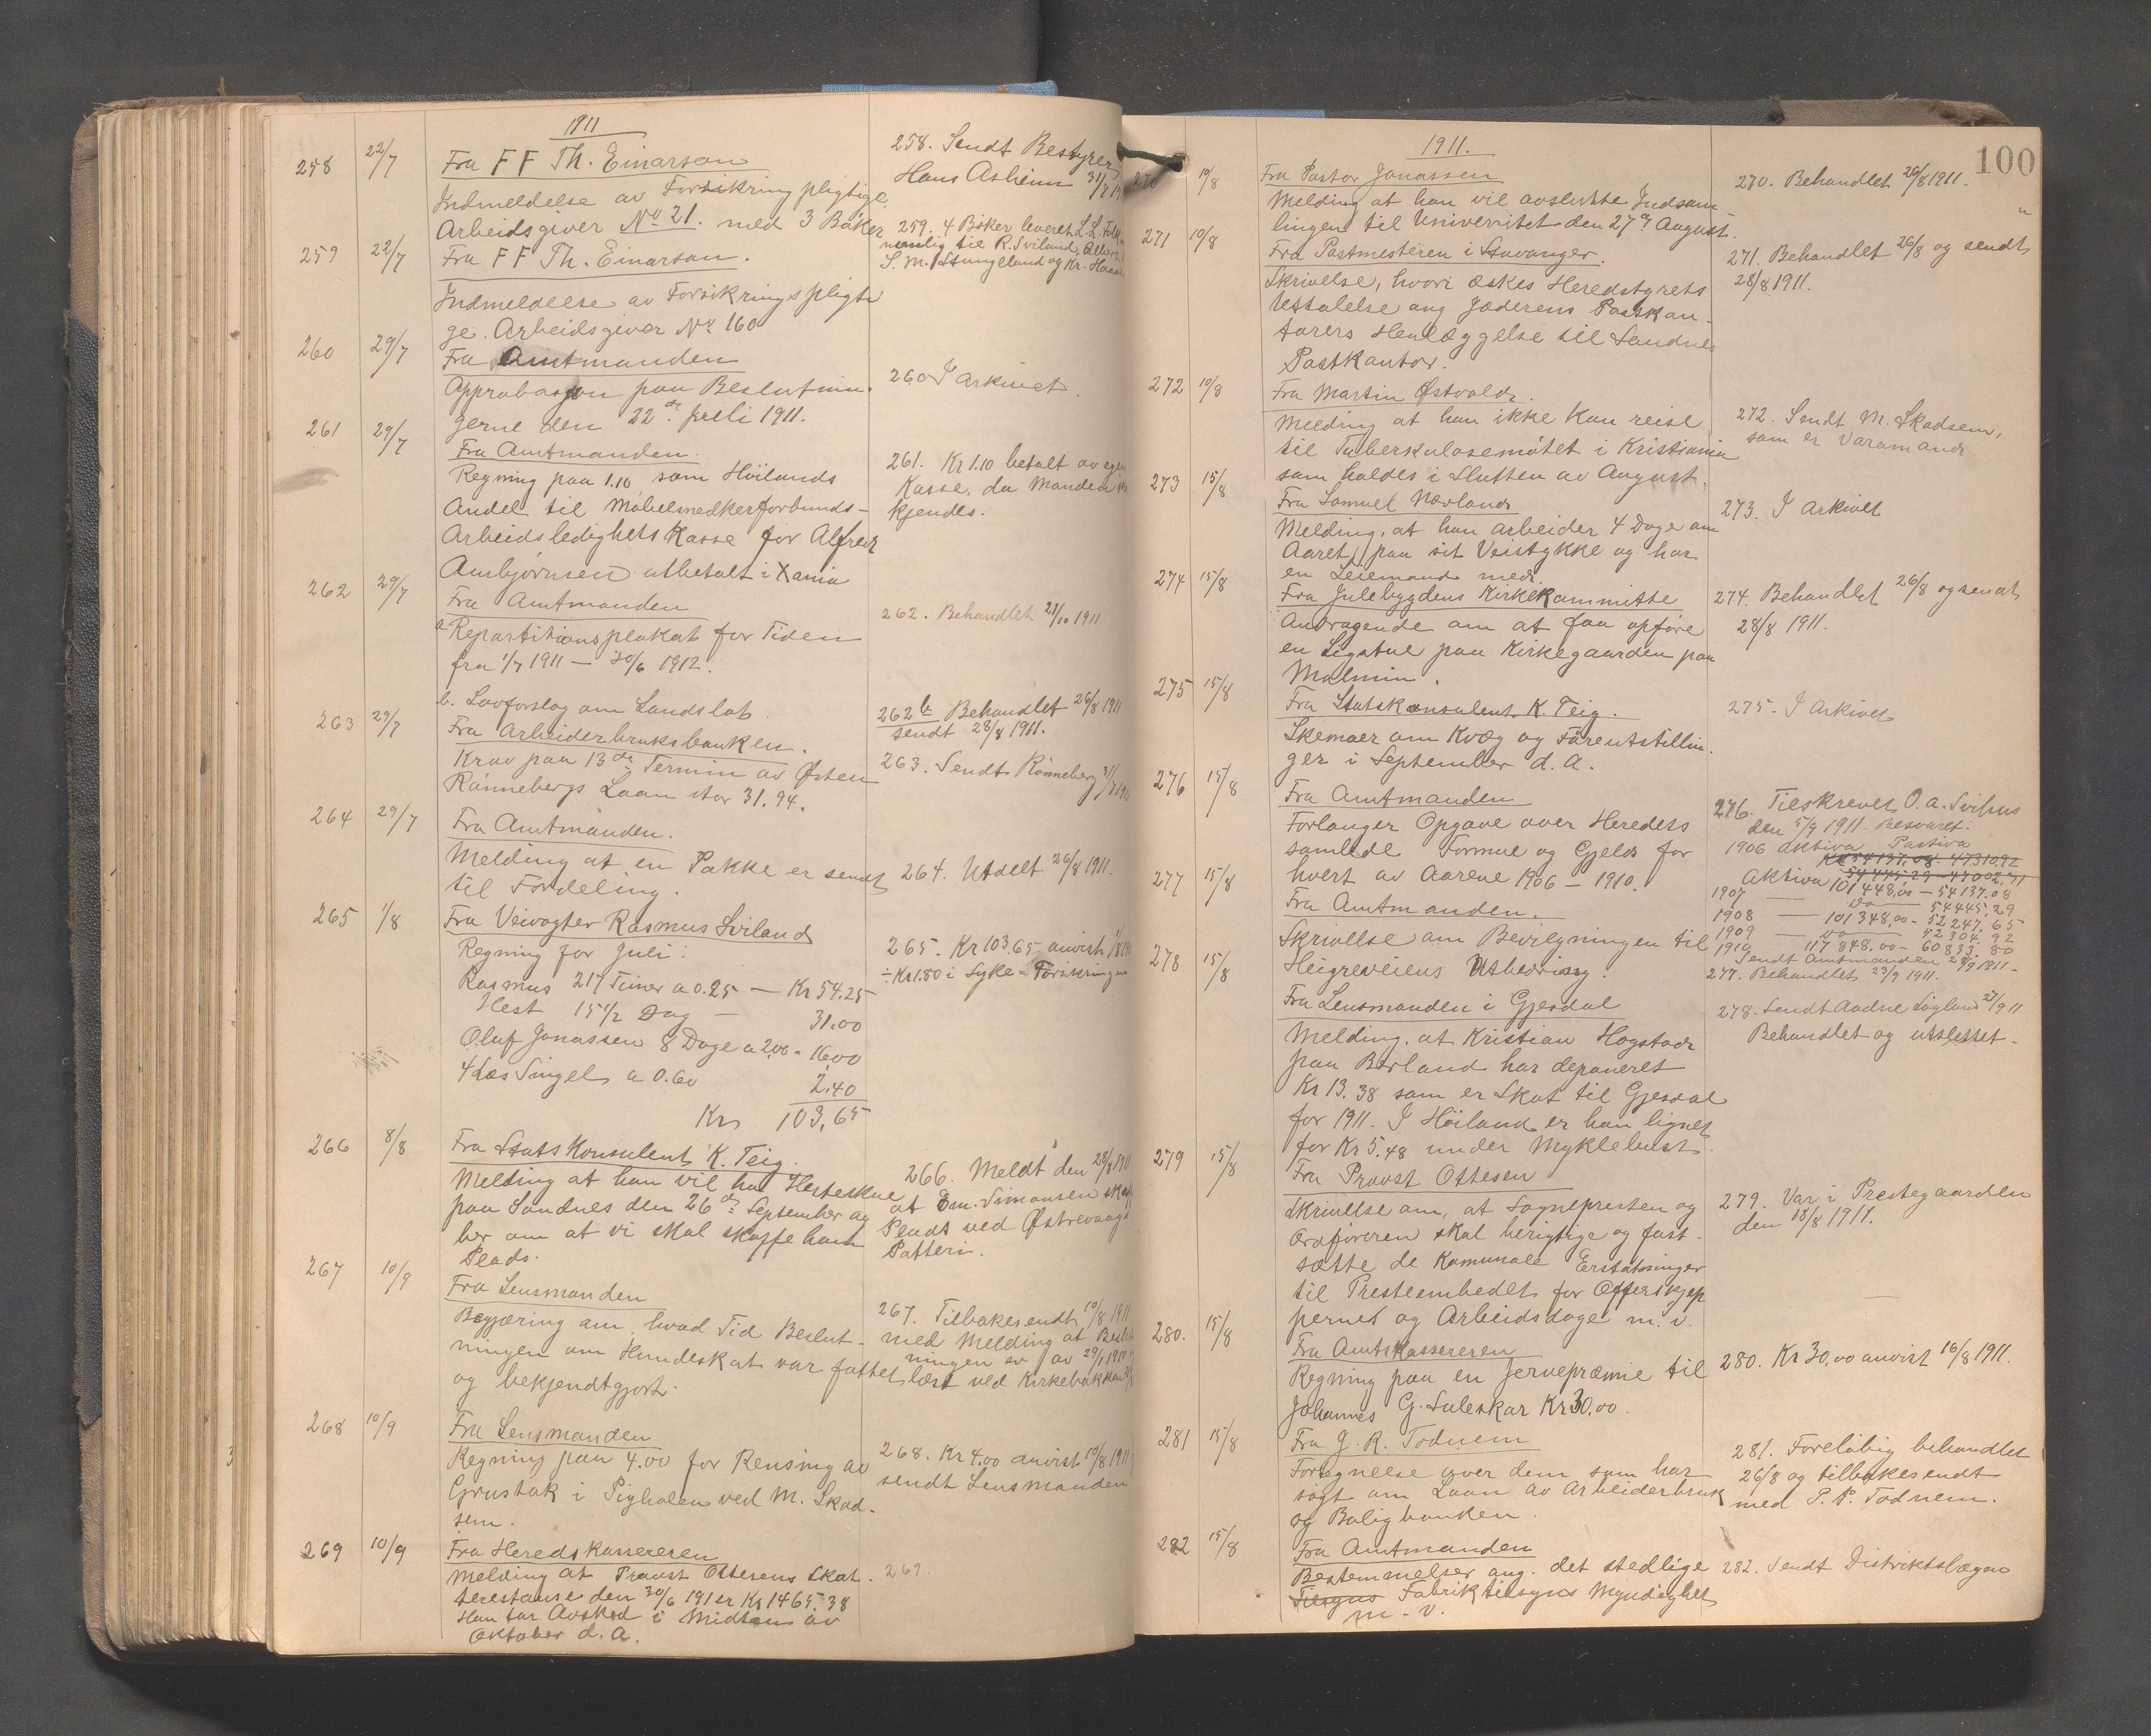 1911
258 22/7 Fra F F Th. Einarson
Indmeldelse av Forsikringspligtige
Arbeidsgiver No 21. med 3 Bøker
258. Sendt Bestyrer
Hans Asheim 31/7
259 22/7 Fra F F Th. Einarson.
Indmeldelse av Forsikringspligti
ge. Arbeidsgiver No 160
259. 4 Bøker leveret L. L.
nemlig til R. Sviland,
S. M. Stangeland og Kr.
260 29/7 Fra Amtmanden
Approbasjon paa Beslutnin
gerne den 22de Juli 1911.
260 I Arkivet.
261 29/7 Fra Amtmanden.
Regning paa 1.10 som Höilands
Andel til Møbelsnedkerforbunds-
Arbeidsledighets Kasse for Alfred
Ambjörnsen utbetalt i Xania
261. Kr 1.10 betalt av egen
Kasse, da Manden
kjendes.
262 29/7 Fra Amtmanden
a Repartitionsplakat for Tiden
fra 1/7 1911 — 30/6 1912.
b. Lovforslag om Landslot.
262. Behandlet 21/10 1911
262 b Behandlet 26/8 1911
sendt 28/8 1911.
263 29/7 Fra Arbeiderbruksbanken.
Krav paa 13de Termin av Østen
Rönnebergs Laan stor 31.94.
263. Sendt Rönneberg 31/7
264 29/7 Fra Amtmanden.
Melding at en Pakke er sendt
til Fordeling.
264. Utdelt 26/8 1911.
265 1/8 Fra Veivogter Rasmus Sviland
Regning for Juli:
Rasmus 217 Timer a 0.25 — Kr 54.25
Hest 15 1/2 Dag — 31.00
Oluf Jonassen 8 Dage a 2.00 = 16.00
4 Læs Singel a 0.60 2.40
Kr 103,65
265. Kr 103.65 anvist 1/8
÷ Kr 1.80 i Syke-Forsikringen
266 8/8 Fra Statskonsulent K. Teig.
Melding at han vil ha Hesteskue
paa Sandnes den 26de September og
ber om at vi skal skaffe ham
Plads.
266. Meldt den 28/8 1911
at Em. Simonsen
Plads ved Østrevaag
Patteri.
267 10/9 Fra Lensmanden
Begjæring om, hvad Tid Beslut-
ningen om Hundeskat var fattet
og bekjendtgjort.
267. Tilbakesendt 10/8 1911
med Melding at Beslut
ningen er av 29/1 1910
læst ved Kirkebakken
268 10/9 Fra Lensmanden
Regning paa 4.00 for Rensing av
Grustak i Pigholen ved M. Skad-
sem.
268. Kr 4.00 anvist 10/8 1911
sendt Lensmanden
269 10/9 Fra Heredskassereren
Melding at Provst Ottesens Skat
terestanse den 30/6 191 er Kr 1465.38
Han tar Avsked i Midten av
Oktober d. A.
269.
100
1911.
270 10/8 Fra Pastor Jonassen
Melding at han vil avslutte Indsam
lingen til Universitet den 27de August.
270. Behandlet 26/8 1911.
271 10/8 Fra Postmesteren i Stavanger.
Skrivelse, hvori æskes Heredstyrets
Uttalelse ang Jæderens Postkon-
torers Henlæggelse til Sandnes
Postkontor.
271. Behandlet 26/8 og sendt
28/8 1911.
272 10/8 Fra Martin Østvold.
Melding at han ikke kan reise
til Tuberkulosemötet i Kristiania
som holdes i Slutten av August.
272. Sendt M. Skadsem,
som er Varamand
273 15/8 Fra Samuel Nærland
Melding, at han arbeider 4 Dage om
Aaret, paa sit Veistykke og har
en Leiemand med.
273. I Arkivet
274 15/8 Fra Julebygdens Kirkekommitte
Andragende om at faa opföre
en Ligstue paa Kirkegaarden paa
Malmin.
274. Behandlet 26/8 og sendt
28/8 1911.
275 15/8 Fra Statskonsulent K. Teig.
Skemaer om Kvæg og Faareutstillin.
ger i September d. A.
275. I Arkivet
276 15/8 Fra Amtmanden
Forlanger Opgave over Heredets
samlede Formue og Gjeld for
hvert av Aarene 1906 — 1910.
276. Tilskrevet O. A. Svihus
den 5/9 1911. Besvaret:
1906 Aktiva Passiva
Kr 54137,08 47310,92
54445.29 — 47002,71
Aktiva 101448,00 — 54137.08
1907 — Do — 54445,29
1908 — 101348,00 - 52247.65
1909 — Do — 52304,92
1910 117848,00 — 60833.80
Sendt Amtmanden 28/9 1911.
277 15/8 Fra Amtmanden.
Skrivelse om Bevilgningen til
Heigreveiens Utbedring.
277. Behandlet 23/9 1911.
278 15/8 Fra Lensmanden i Gjesdal
Melding, at Kristian Hogstad
paa Borland har deponeret
Kr 13.38 som er Skat til Gjesdal
for 1911. I Höiland er han lignet
for Kr 5.48 under Myklebust.
278. Sendt Aadne Lögland 27/9 11
Behandlet og utslettet.
279 15/8 Fra Provst Ottesen
Skrivelse om, at Sognepresten og
Ordföreren skal berigtige og fast-
sætte de Kommunale Erstatninger
til Presteembedet for Offerskjep
pernes og Arbeidsdage m. v.
279. Var i Prestegaarden
den 18/8 1911.
280. 15/8 Fra Amtskassereren
Regning paa en Jervepræmie til
Johannes G. Suleskar Kr 30.00.
280. Kr 30,00 anvist 16/8 1911.
281 15/8 Fra G. R. Todnem
Fortegnelse over dem som har
sögt om Laan av Arbeiderbruk
og Boligbanken.
281. Forelöbig behandlet
26/8 og tilbakesendt
med P. P. Todnem.
282 15/8 Fra Amtmanden
Bestemmelser ang. det stedlige
Tilsyns Fabriktilsyns Myndighet
m. v.
282. Sendt Distriktslægen